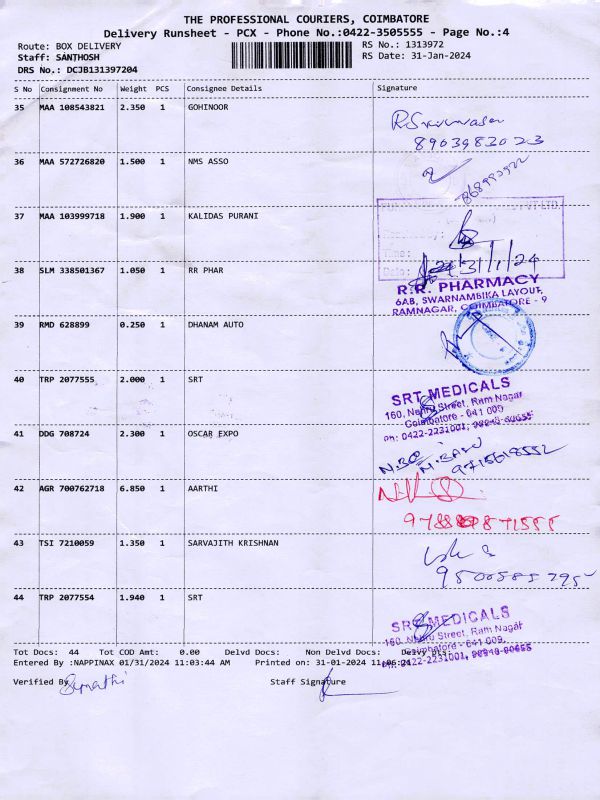 THE PROFESSIONAL COURIERS, COIMBATORE
Delivery Runsheet - PCX - Phone No.:0422-3505555 - Page No.:4
Route: BOX DELIVERY RS No.: 1313972
Staff: SANTHOSH RS Date: 31-Jan-2024
DRS No.: DCJB131397204
S No Consignment No Weight PCS Consignee Details Signature
35 MAA 108543821 2.350 1 GOHINOOR
8903983023
36 MAA 572726820 1.500 1 NMS ASSO
37 MAA 103999718 1.900 1 KALIDAS PURANI
31/1/24
38 SLM 338501367 1.050 1 RR PHAR
R.R. PHARMACY
6AB, SWARNAMBIKA LAYOUT,
RAMNAGAR, COIMBATORE - 9
39 RMD 628899 0.250 1 DHANAM AUTO
40 TRP 2077555 2.000 1 SRT
SRT MEDICALS
160, Nehru Street, Ram Nagar
Coimbatore - 641 009
Ph: 0422-2231001, 98943-60655
41 DDG 708724 2.300 1 OSCAR EXPO
9715618552
42 AGR 700762718 6.850 1 AARTHI
43 TSI 7210059 1.350 1 SARVAJITH KRISHNAN
9500585795
44 TRP 2077554 1.940 1 SRT
SRT MEDICALS
160, Nehru Street, Ram Nagar
Coimbatore - 641 009,
Ph: 0422-2231001, 98943-60655
Tot Docs: 44 Tot COD Amt: 0.00 Delvd Docs: Non Delvd Docs: Delvy pts:
Entered By :NAPPINAX 01/31/2024 11:03:44 AM Printed on: 31-01-2024 11:06:21
Verified By Staff Signature